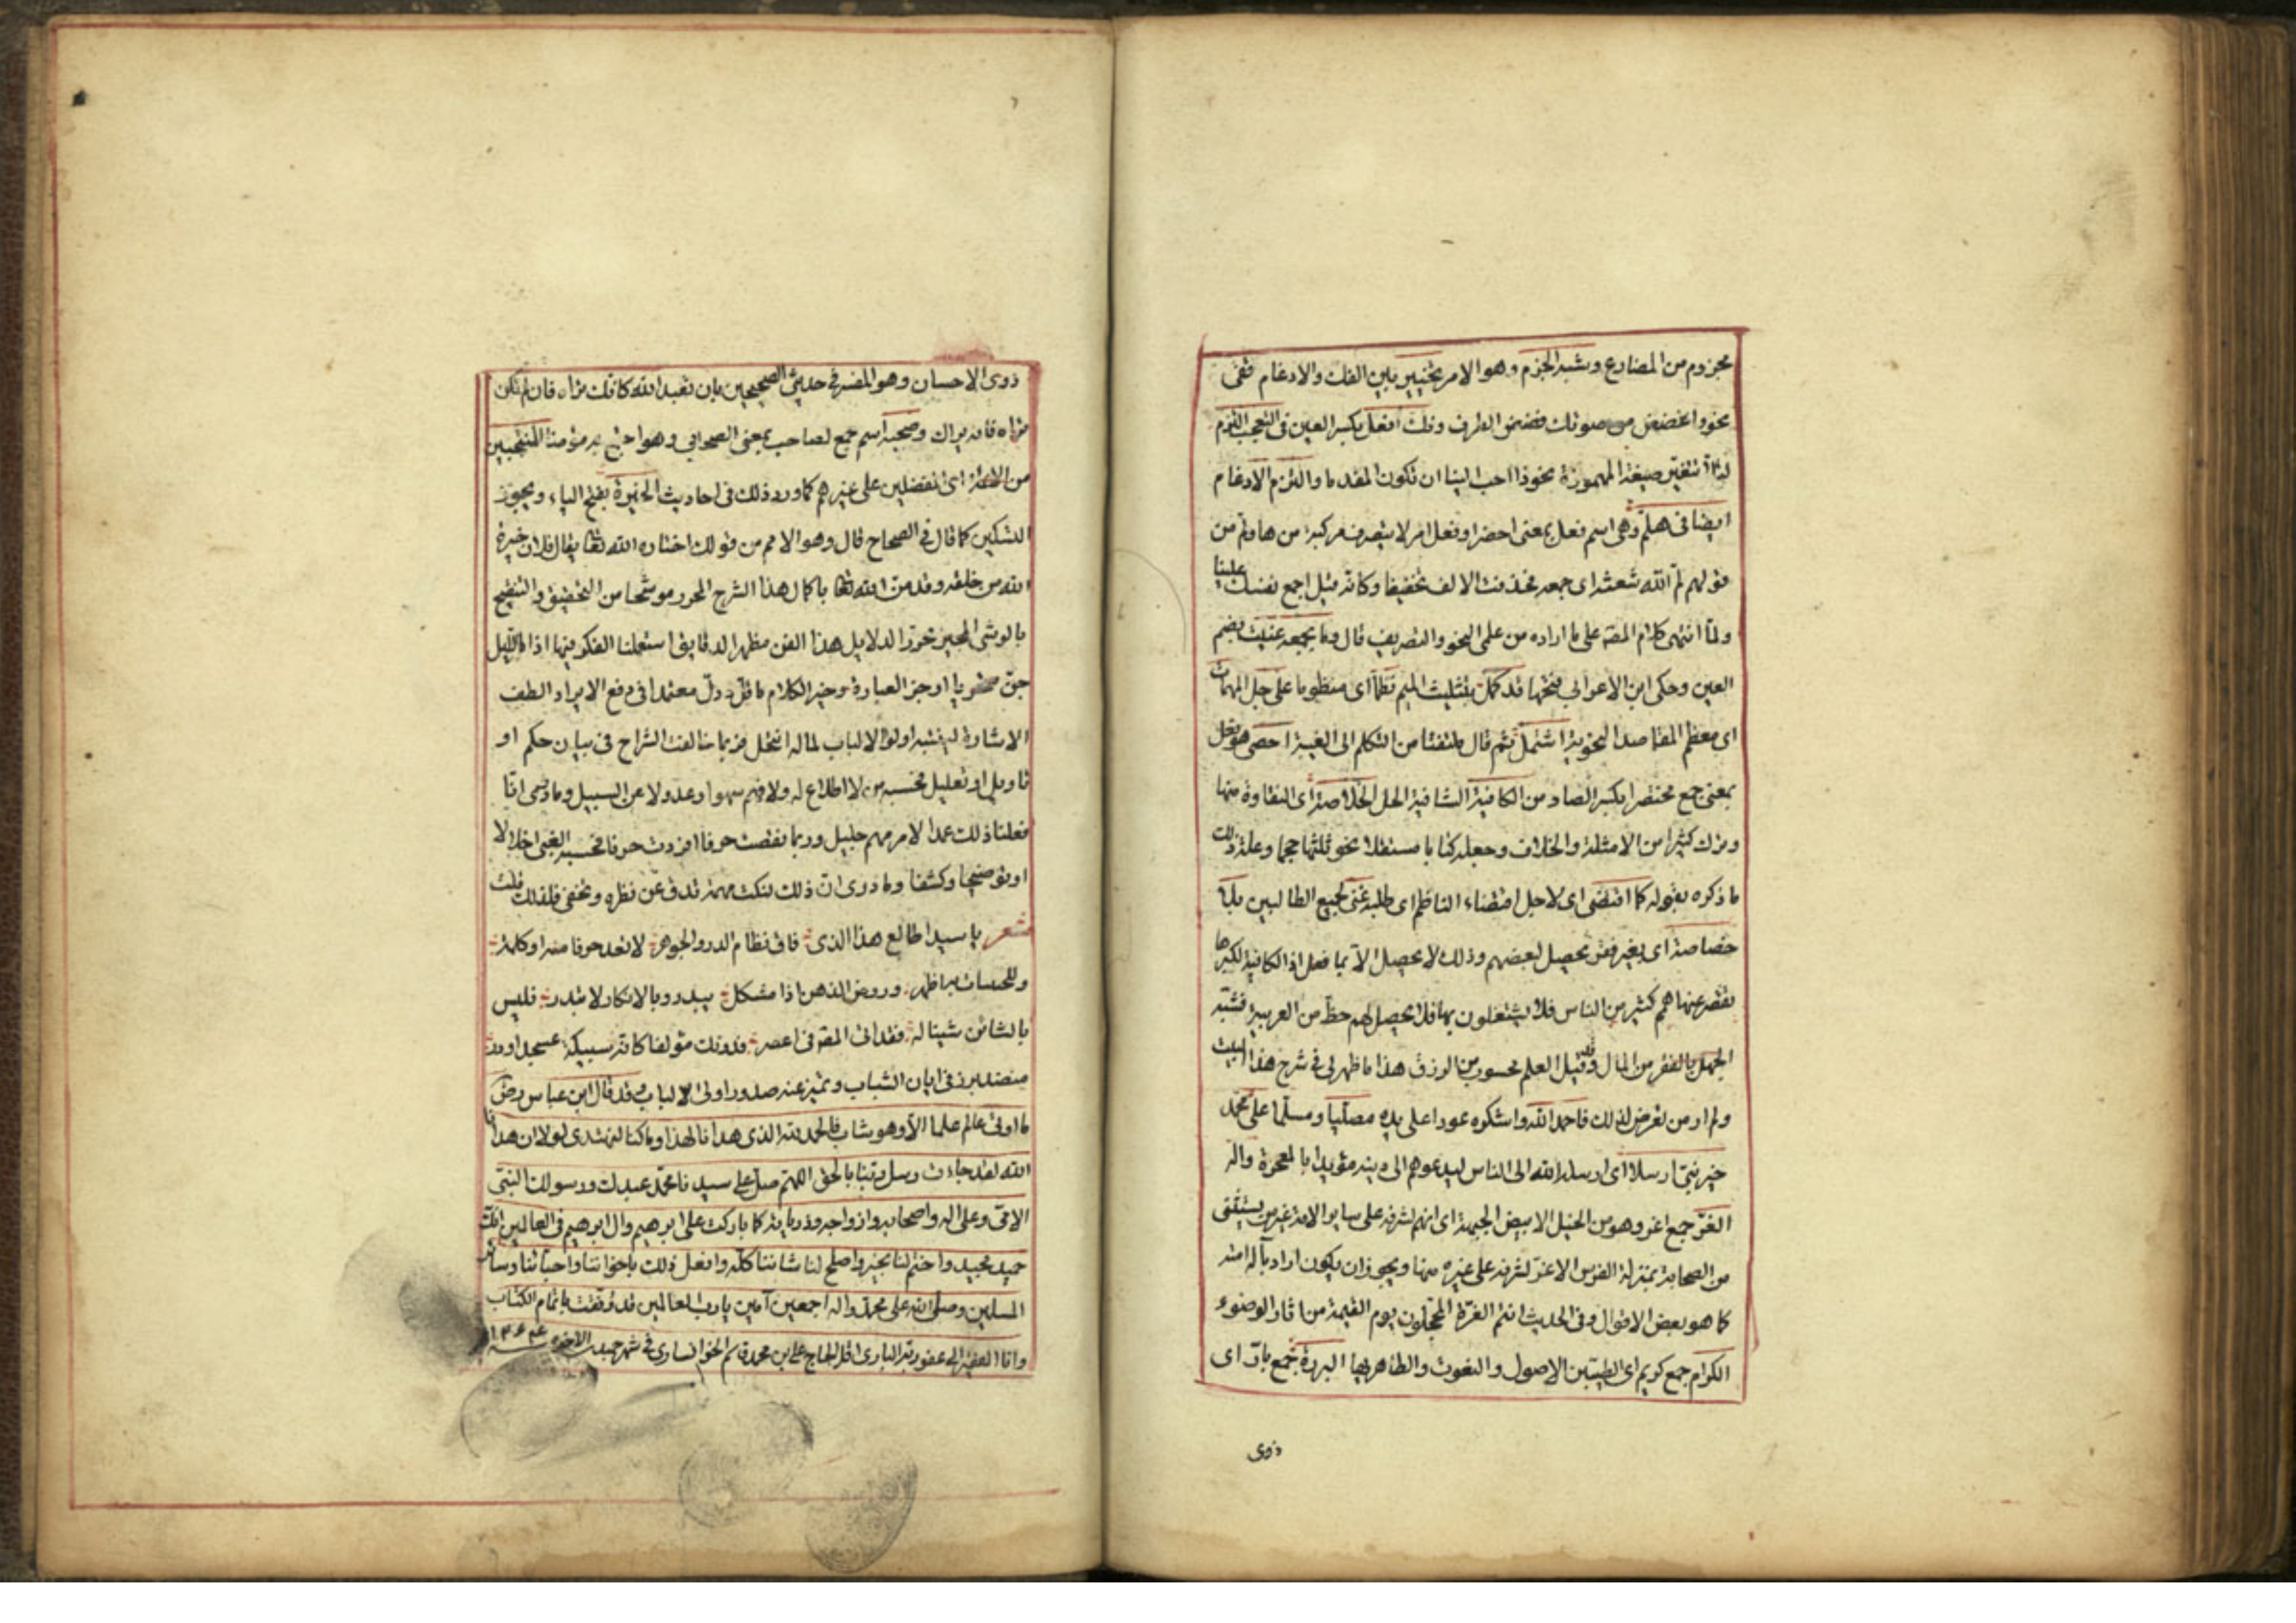 مجزوم من المضارع وشبه الجزم وهو الامر تخيير بين الفك والادغام قفى
نحو واغضض من صوتك فغض الطرف وفك افعل بكسر العين فى التعجب التزم
لئلا تتغير صيغة المهموزة نحو ذا احب الينا ان تكون المقدما والتزم الادغام
ايضا فى هلم وهى اسم فعل بمعنى احضر او فعل امر لا يتصرف مركبة من ها ولم من
قولهم لم الله شعثه اى جمعه فحذفت الالف تخفيفا وكانه قيل اجمع نفسك علينا
ولما انتهى كلام المص على ما اراده من علمى النحو والتصريف قال وما بجمعه عنيت بضم
العين وحكى ابن الاعرابى فتحها قد كمل بتثليث الميم نظما اى منظوما على جل المهمات
اى معظم المقاصد النحوية اشتمل ثم قال ملتفتا من التكلم الى الغيبة احصى هو فعل
بمعنى جمع مختصرا بكسر الصاد من الكافية الشافية الحل الخلاصة اى النقاوة منها
وترك كثيرا من الامثلة والخلاف وجعله كتابا مستقلا نحو ثلثها حجما وعلة ذلك
ما ذكره بقوله كما اقتضى اى لاجل اقتضاء الناظم اى طلبه غنى لجميع الطالبين بلا
خصاصة اى بغير فقر يحصل لبعضهم وذلك لا يحصل الا بما فعل اذ الكافية لكبرها
تقصر عنها همم كثير من الناس فلا يشتغلون بها فلا يحصل لهم حظ من العربية فشبه
الجهل بالفقر من المال وقد قيل العلم محسوب من الرزق هذا ما ظهر لى فى شرح هذا البيت
ولم ار من تعرض لذلك فاحمد الله واشكره عودا على بدء مصليا ومسلما على محمد
خير نبى ارسلا اى ارسله الله الى الناس ليدعوهم الى دينه مؤيدا بالمعجزة واله
الغر جمع اغر وهو من الخيل الابيض الجبهة اى انهم لشرفهم على ساير الامة غير من يستثنى
من الصحابة بمنزلة الفرس الاغر لشرفه على غيره منها ويجوز ان يكون اراد باله امته
كما هو بعض الاقوال وفى الحديث انتم الغرة المحجلون يوم القيمة من اثار الوضوء
الكرام جمع كريم اى الطيبين الاصول والنعوت والطاهريها البررة جمع بار اى
ذوى
ذوى الاحسان وهو المفسر فى حديث الصحيحين بان تعبد الله كانك تراه فان لم تكن
تراه فانه يراك وصحبه اسم جمع لصاحب بمعنى الصحابى وهو اجتمع به مؤمنا المنتخبين
من الامة اى المفضلين على غيرهم كما ورد ذلك فى احاديث الخيرة بفتح الياء ويجوز
التسكين كما قال فى الصحاح قال وهو الاسم من قولك اختاره الله تعا يقال فلان خيرة
الله من خلقه وقد من الله تعا باكمال هذا الشرح المحرر موشحا من التحقيق والتنقيح
بالوشى المحبر محرزا لدلايل هذا الفن مظهرا لدقايق استعملنا الفكر فيها اذا ما الليل
جن محتويا اوجز العبارة وخير الكلام ما قل ودل معتمدا فى دفع الايراد الطف
الاشارة ليتنبه اولو الالباب لما له انتحل فربما خالفت الشراح فى بيان حكم او
تاويل او تعليل فحسبه من لا اطلاع له ولا فهم سهوا وعدولا عن السبيل وما درى انا
فعلنا ذلك عمدا لامر مهم جليل وربما نقصت حرفا او زدت حرفا فحسبه الغبى اخلالا
او توضيحا وكشفا وما درى ان ذلك لنكت مهمة تدق عن نظره وتخفى فلذلك قلت
شعر يا سيدا طالع هذا الذى فاق نظام الدر والجوهر لا تعد حرفا منه او كلمة
وللخبيات به اظهر وروض الذهن اذا مشكل يبدو وبالانكار لا تبدر فليس
بالشائن شيئا له فقد اتى المقة فى اعصر فدونك مؤلفا كانه سبيكة عسجد او در
منضد برز فى ابان الشباب وتميز عند صدور اولى الالباب وقد قال ابن عباس رض
ما اوتى عالم علما الا وهو شاب فالحمد لله الذى هدانا لهذا وما كنا لنهتدى لولا ان هدانا
الله لقد جاءت رسل ربنا بالحق اللهم صل على سيدنا محمد عبدك ورسولك النبى
الامى وعلى اله واصحابه وازواجه وذرياته كما باركت على ابرهيم وال ابرهيم فى العالمين انك
حميد مجيد واختم لنا بخير واصلح لنا شاننا كله وافعل ذلك باخواننا واحبائنا وسائر
المسلمين وصلى الله على محمد واله اجمعين آمين يا رب العالمين قد وفقت باتمام الكتاب
وانا الفقير الى عفو ربه البارى اقل الحاج على ابن محمد قاسم الخوانسارى فى شهر جميد الاخره سنه